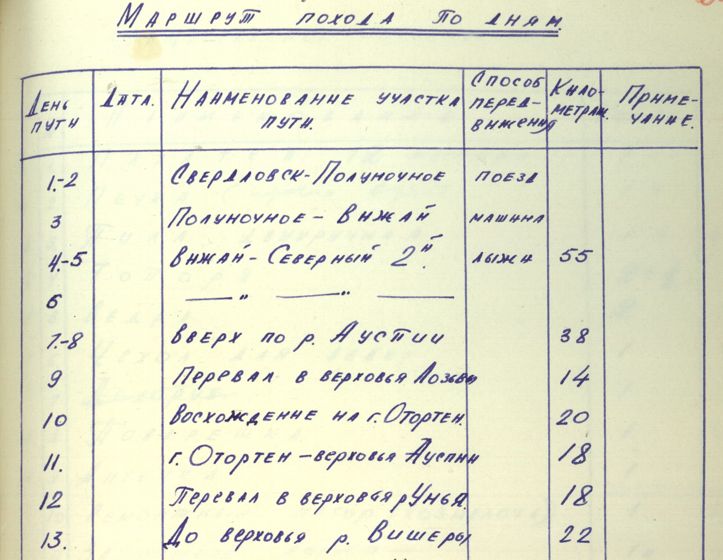 Маршрут похода по дням.
День пути | Дата. | Наименование участка пути. | Способ передвижения | Километраж. | Примечание.
1.-2 | Свердловск-Полуночное | поезд
3 | Полуночное - Вижай | машина
4.-5 | Вижай - Северный 2й. | лыжи | 55
6 | — " — " —
7.-8 | Вверх по р. Аустии | 38
9 | Перевал в верховья Лозьвы | 14
10 | Восхождение на г. Отортен. | 20
11. | г. Отортен - верховья Ауспии | 18
12 | Перевал в верховья р Унья | 18
13. | До верховья р. Вишеры | 22